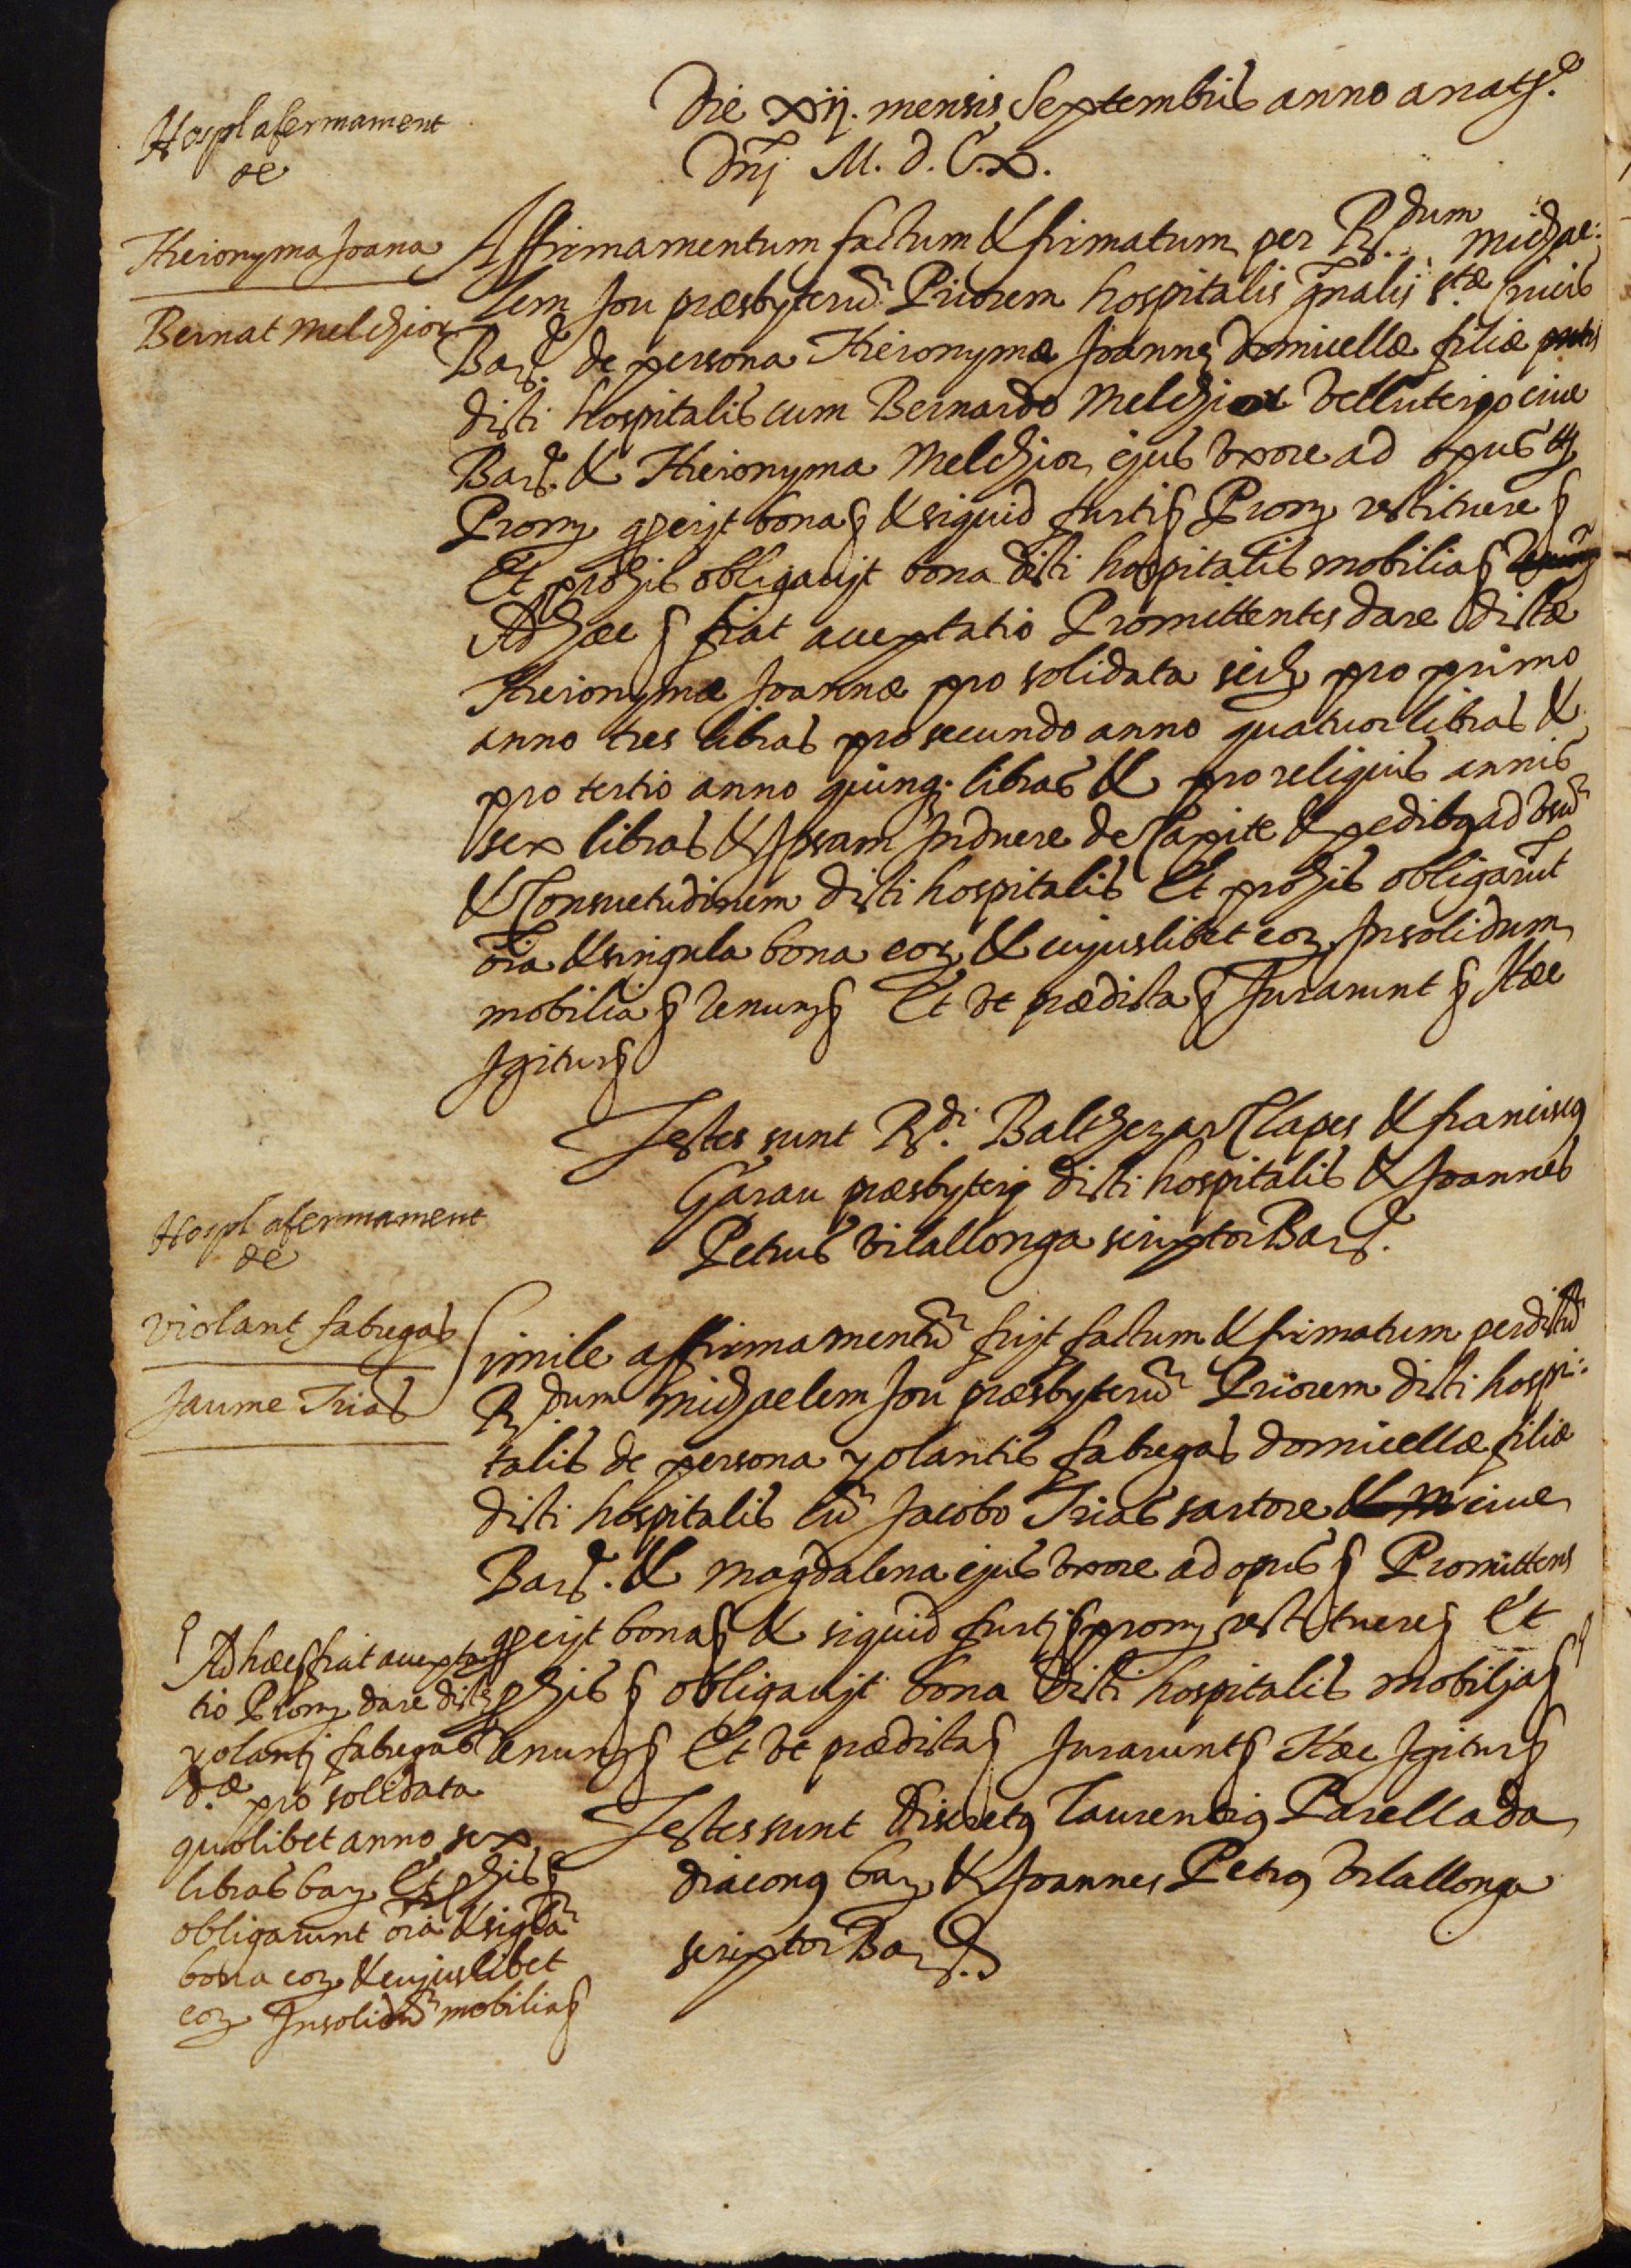 Die xij. mensis Septembris anno a natt.e
Dnj M. d. C. x.
Hospl afermament
de
Hieronyma Joana
Bernat Melchior
Affirmamentum factum & firmatum per R.dum Michae:
lem Jou præsbyterũ Priorem hospitalis gñalis s.tæ Crucis
Bar.e de persona Hieronymæ Joannæ domicellæ filiæ
dicti hospitalis cum Bernardo Melchior velluterio cive
Bar.e & Hieronyma Melchior ejus vxore ad opus
Prom bona & siquid furti Prom restituere
Et pro his obligavit bona dicti hospitalis mobilia
Ad hæc fiat acceptatio Promittentes dare dictæ
Hieronymæ Joannæ pro solidata scilz pro primo
anno tres libras pro secundo anno quatuor libras &
pro tertio anno quinqz libras & pro reliquis annis
sex libras & Ipsam Induere de Capite & pedibz ad vsũ
& Consuetudinem dicti hospitalis Et pro his obligarũt
oĩa & singula bona eoz & cujuslibet eoz Insolidum
mobilia Renun Et vt prædicta Jurarunt Hæc
Igitur
Testes sunt R.di Balthezar Clapes & franciscus
Garau præsbyterj dicti hospitalis & Joannes
Petrus Vilallonga scriptor Bar.e
Hospl afermament
de
Violant fabregas
Jaume Trias
Simile affirmamentũ fujt factum & firmatum per dictũ
R.dum Michaelem Jou præsbyterũ Priorem dicti hospi:
talis de persona yolantis fabregas domicellæ filiæ
dicti hospitalis cũ Jacobo Trias sartore cive
Bar.e & Magdalena ejus vxore ad opus Promittens
bona & siquid furtj prom restituere Et
p his obligavjt bona dicti hospitalis mobilja
Renun Et vt prædicta Jurarunt Hæc Igitur
Testes sunt discretus Laurentius Parellada
diaconus bar & Joannes Petrus Vilallonga
scriptor Bar.e
Ad hæc fiat accepta
tio Prom dare dictæ
yolantj fabregas
d.æ pro solidata
quolibet anno sex
libras bar Et p his
obligarunt oĩa & sigla
bona eoz & cujuslibet
eoz Insolidũ mobilia